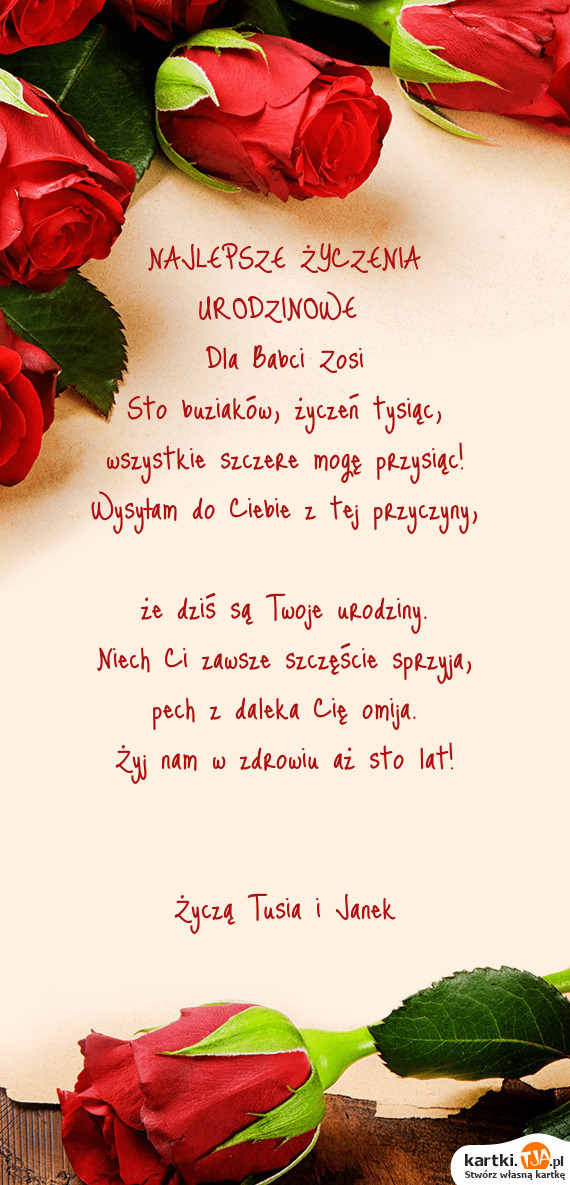 NAJLEPSZE ŻYCZENIA
URODZINOWE
Dla Babci Zosi
Sto buziaków, życzeń tysiąc,
wszystkie szczere mogę przysiąc!
Wysyłam do Ciebie z tej przyczyny,
że dziś są Twoje urodziny.
Niech Ci zawsze szczęście sprzyja,
pech z daleka Cię omija.
Żyj nam w zdrowiu aż sto lat!
Życzą Tusia i Janek
kartki.TJA.pl
Stwórz własną kartkę